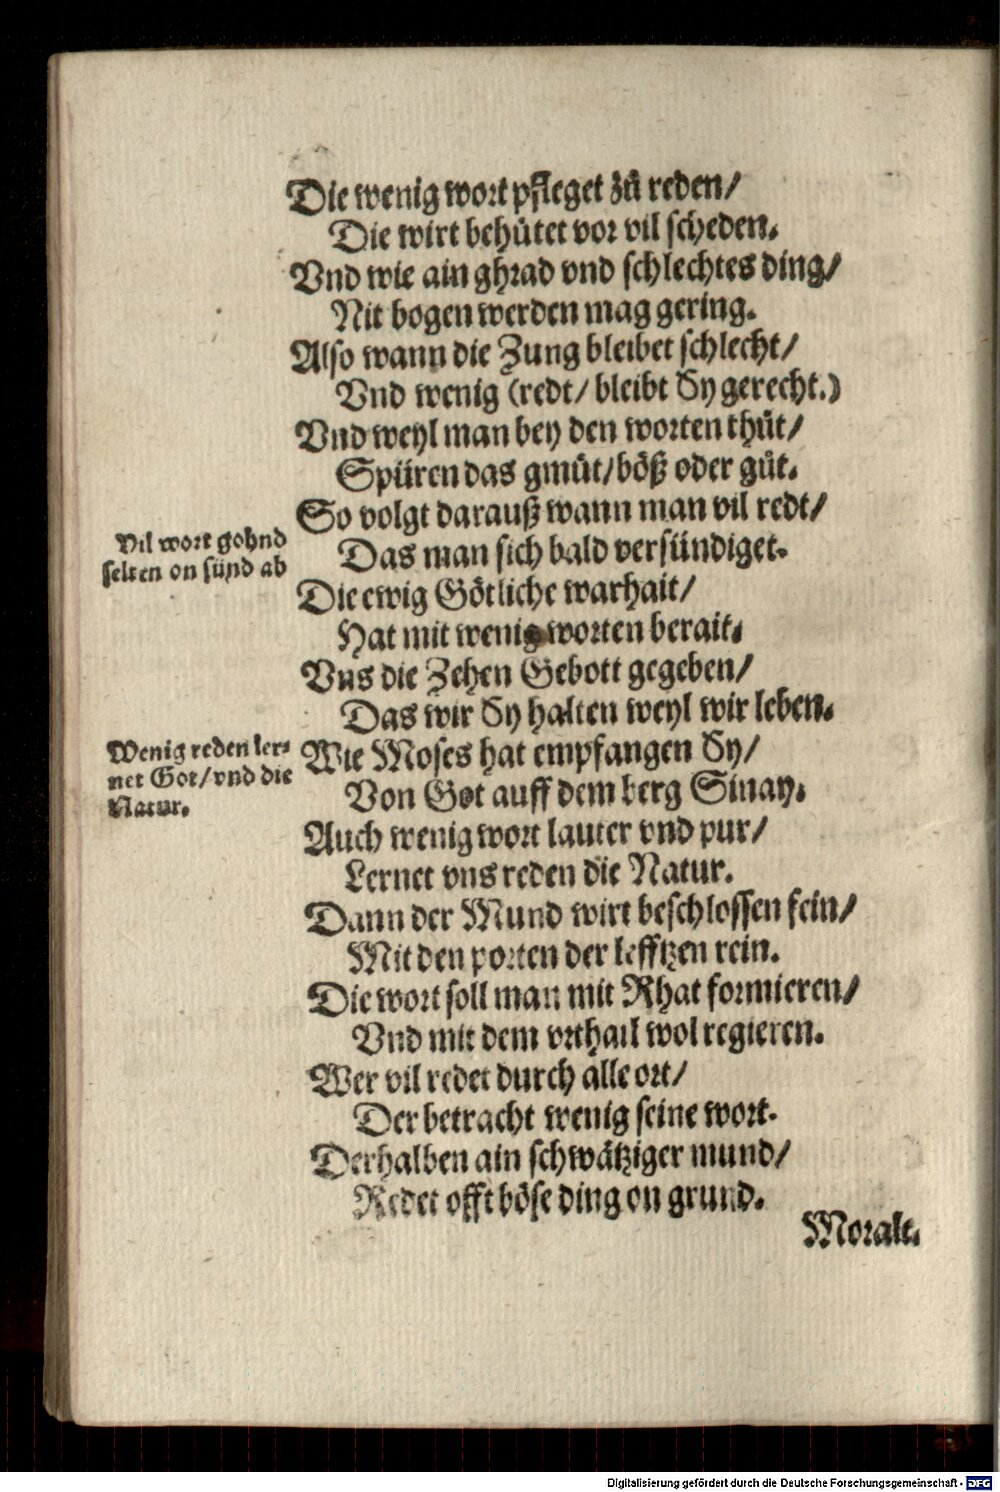 Die wenig wort pfleget zů reden/
Die wirt behütet vor vil scheden.
Vnd wie ain ghrad vnd schlechtes ding/
Nit bogen werden mag gering.
Also wann die Zung bleibet schlecht/
Vnd wenig (redt/ bleibt Sy gerecht.)
Vnd weyl man bey den worten thůt/
Spüren das gmůt/ böß oder gůt.
So volgt darauß wann man vil redt/
Das man sich bald versündiget.
Vil wort gohnd
selten on sünd ab
Die ewig Götliche warhait/
Hat mit wenig worten berait.
Vns die Zehen Gebott gegeben/
Das wir Sy halten weyl wir leben.
Wenig reden ler-
net Got/ vnd die
Natur.
Wie Moses hat empfangen Sy/
Von Got auff dem berg Sinay.
Auch wenig wort lauter vnd pur/
Lernet vns reden die Natur.
Dann der Mund wirt beschlossen fein/
Mit den porten der lefftzen rein.
Die wort soll man mit Rhat formieren/
Vnd mit dem vrthail wol regieren.
Wer vil redet durch alle ort/
Der betracht wenig seine wort.
Derhalben ain schwätziger mund/
Redet offt böse ding on grund.
Moralt.
Digitalisierung gefördert durch die Deutsche Forschungsgemeinschaft - DFG